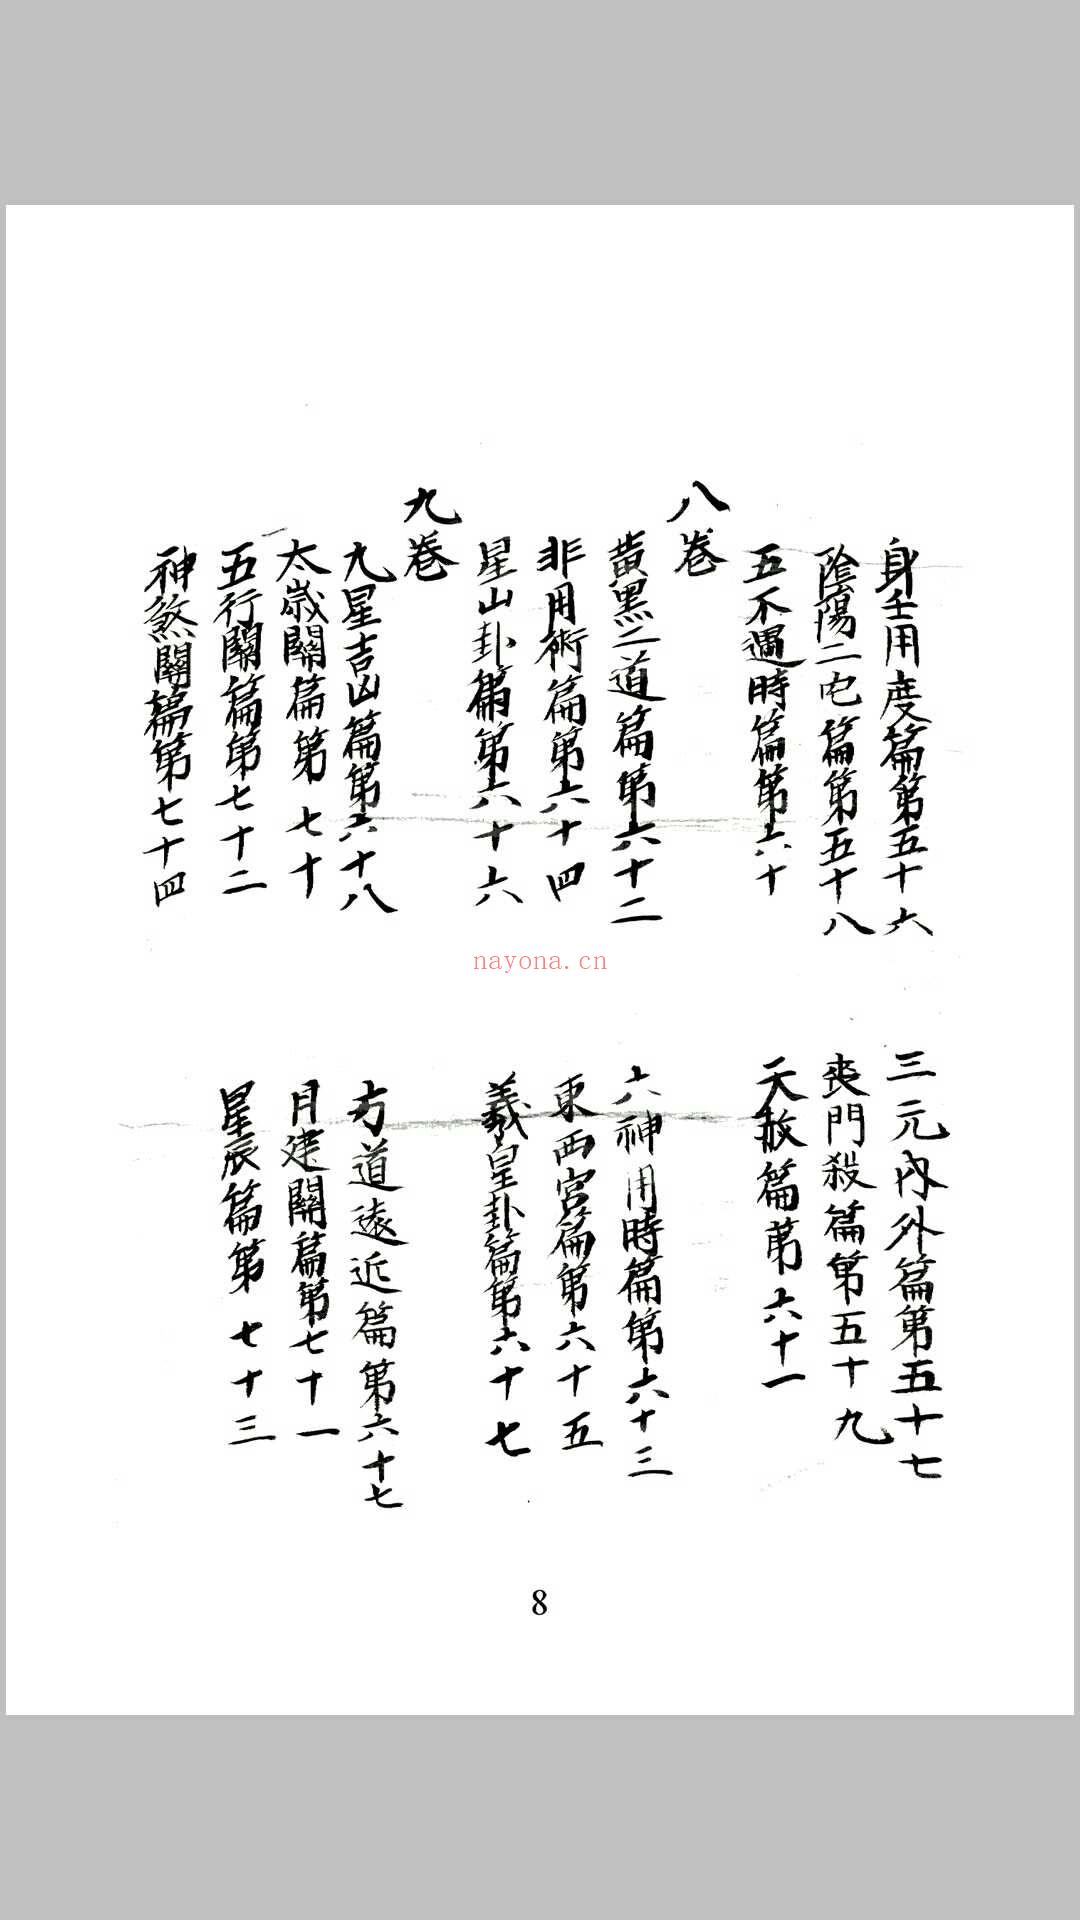 身壬用度篇第五十六
三元內外篇第五十七
陰陽二宅篇第五十八
喪門殺篇第五十九
五不遇時篇第六十
天赦篇第六十一
八卷
黃黑二道篇第六十二
六神用時篇第六十三
非用術篇第六十四
東西宮篇第六十五
星山卦篇第六十六
羲皇卦篇第六十七
九卷
九星吉凶篇第六十八
方道遠近篇第六十七
太歲關篇第七十
月建關篇第七十一
五行關篇第七十二
星辰篇第七十三
神煞關篇第七十四
nayona.cn
8